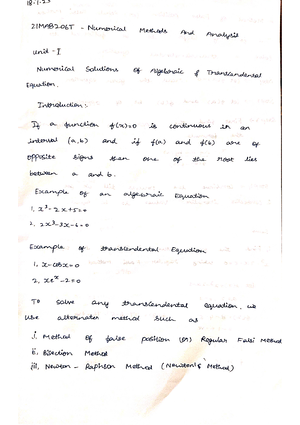 18.1.23
21MAB206T - Numerical Methods And Analysis
Unit - I
Numerical Solutions of Algebraic & Transcendental
Equation.
Introduction:
If a function f(x)=0 is continuous in an
interval (a,b) and if f(a) and f(b) are of
opposite signs then one of the root lies
between a and b.
Example of an algebraic Equation
1. x³-2x+5=0
2. 2x³-3x-6=0
Example of transcendental Equation
1. x-cosx=0
2. xeˣ-2=0
To solve any transcendental equation, we
use alternate method such as
i. Method of false position (or) Regular Falsi Method
ii. Bisection Method
iii. Newton - Raphson Method (Newton's Method)